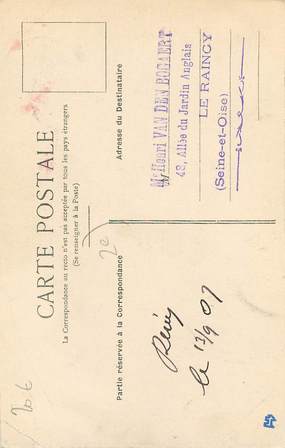 CARTE POSTALE
La Correspondance au recto n'est pas acceptée par tous les pays étrangers
(Se renseigner à la Poste)
Partie réservée à la Correspondance
Adresse du Destinataire
Mr Henri VAN DEN BOGAERT
48, Allée du Jardin Anglais
LE RAINCY
(Seine-et-Oise)
le 12/9 07
2e